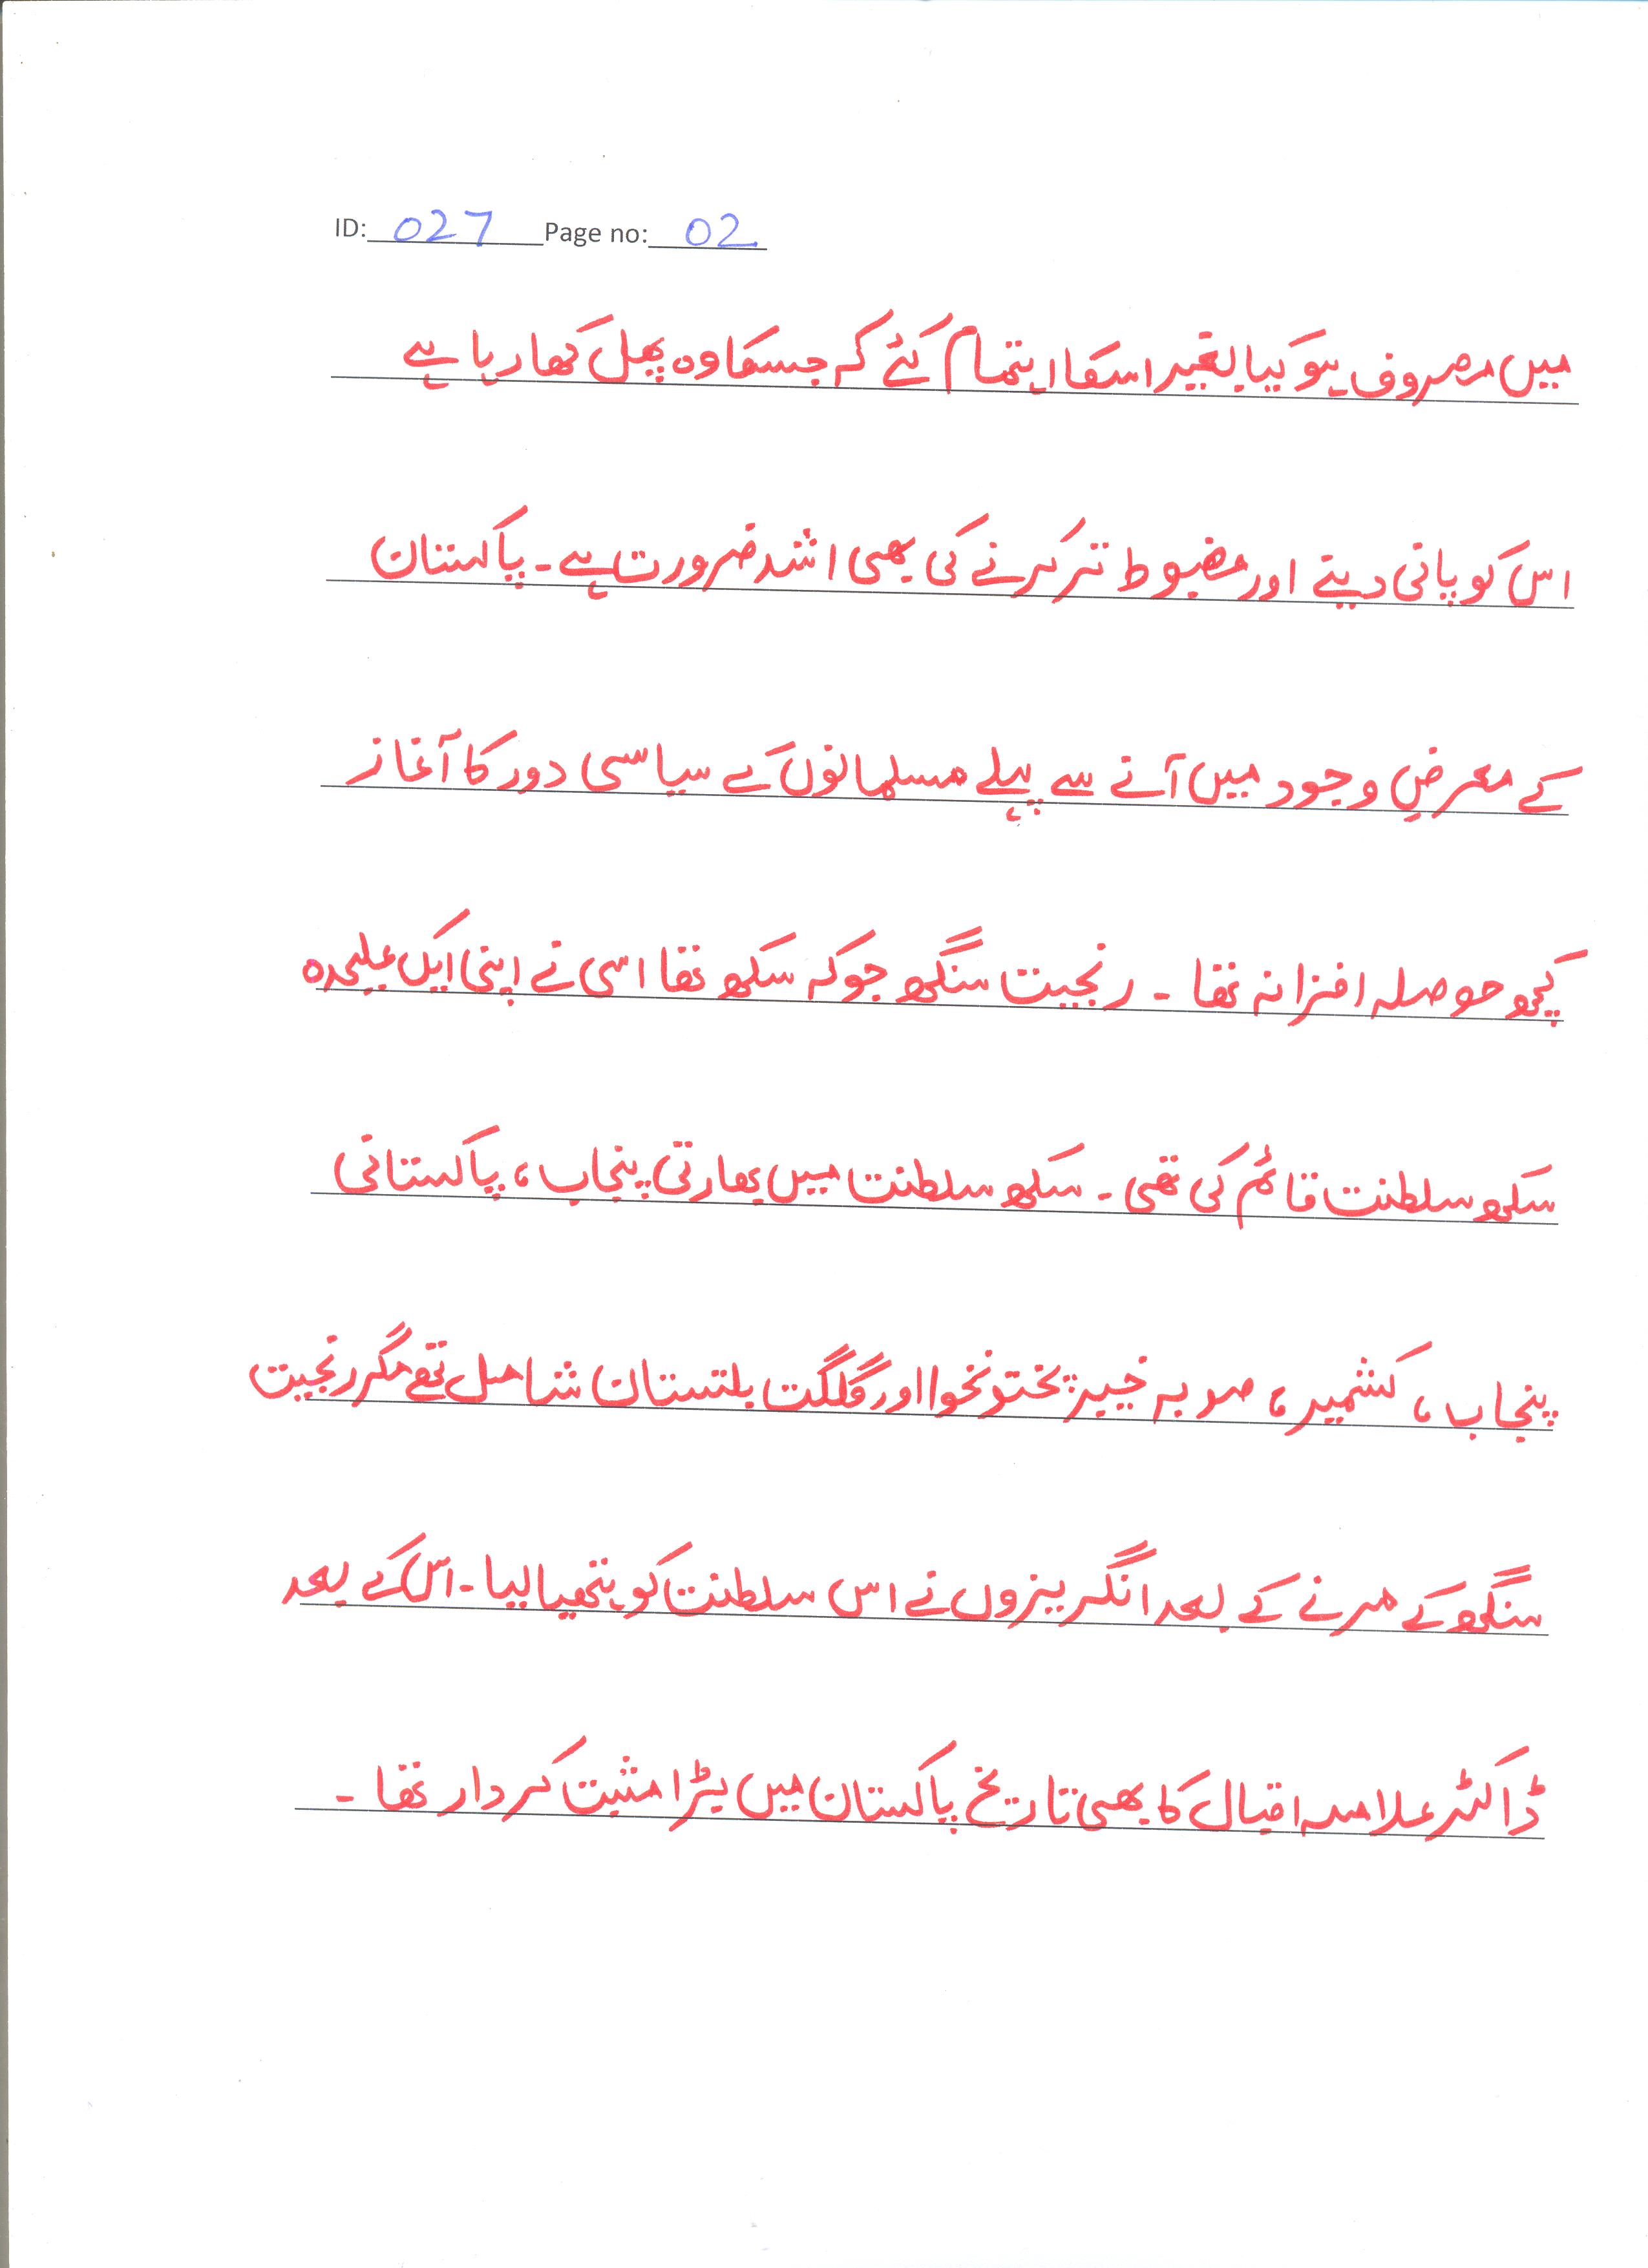 ID: 027 Page no: 02
میں مصروف ہو گیا بغیر اسکا اہتمام کئے کہ جسکا وہ پھل کھا رہا ہے
اس کو پانی دینے اور مضبوط تر کرنے کی بھی اشد ضرورت ہے۔ پاکستان
کے معرضِ وجود میں آنے سے پہلے مسلمانوں کے سیاسی دور کا آغاز
کچھ حوصلہ افزا نہ تھا ۔ رنجیت سنگھ جو کہ سکھ تھا اسی نے اپنی ایک علیحدہ
سکھ سلطنت قائم کی تھی ۔ سکھ سلطنت میں بھارتی پنجاب، پاکستانی
پنجاب، کشمیر، صوبہ خیبر پختونخوا اور گلگت بلتستان شامل تھے مگر رنجیت
سنگھ کے مرنے کے بعد انگریزوں نے اس سلطنت کو ہتھیا لیا ۔ اس کے بعد
ڈاکٹر علامہ اقبال کا بھی تاریخ پاکستان میں بڑا مثبت کردار تھا ۔